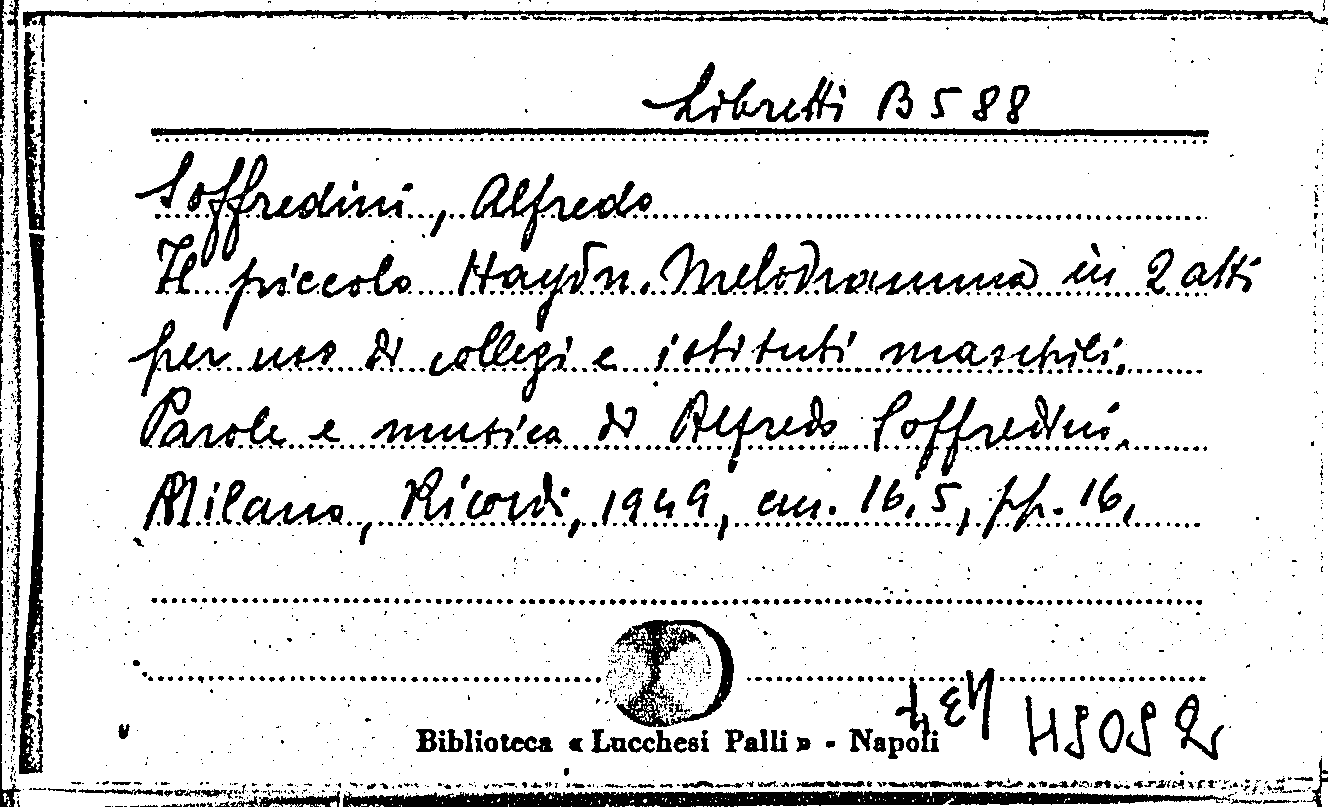 Libretti B 588
Soffredini, Alfredo
Il piccolo Haydn. Melodramma in 2 atti
per uso di collegi e istituti maschili.
Parole e musica di Alfredo Soffredini.
Milano, Ricordi, 1949, cm. 16,5, pp. 16.
Biblioteca « Lucchesi Palli » - Napoli